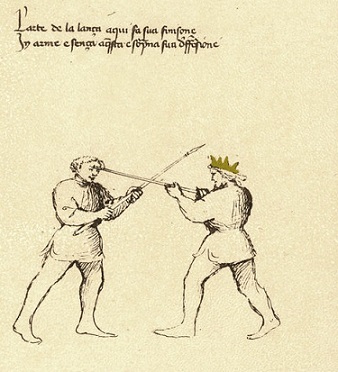 L'arte de la lança aqui fa sua finisone
In arme e sença aq̃sta e soṽna sua off̃esione